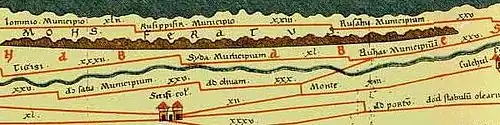 Iomnio. Municipio. xln. Rusippisir. Municipio xxiii. Rusahu Municipium. xxv.
MONS FERATVS
H d B d B e
Tigisi xxxii. Syda Municipium xl. Rusuai Municipiũ
xxv. ad sava Municipium. xxv. ad olivam. xxx. Monte. xiii. Sulchul
Sitifi col. xii. ad pontũ. ad stabulũ olearũ
xl. xxxv.